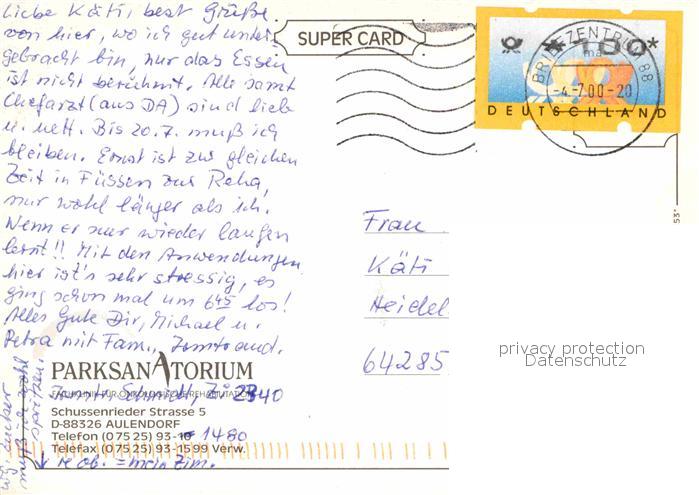 Liebe Käti, best Grüße
von hier, wo ich gut unter
gebracht bin, nur das Essen
ist nicht berühmt. Alle samt
Chefarzt (aus DA) sind lieb
u. nett. Bis 20.7. muß ich
bleiben. Ernst ist zur gleichen
Zeit in Füssen zur Reha,
nur wohl länger als ich.
Wenn er nur wieder laufen
lernt!! Mit den Anwendungen
hier ist's sehr stressig, es
ging schon mal um 6 45 los!
Alles Gute Dir, Michael u.
Petra mit Fam.,
SUPER CARD
BRIEFZENTRUM 88
ma
-4.-7.00-20
*100*
DEUTSCHLAND
53*
Frau
Käti
Heidel
64285
privacy protection
Datenschutz
PARKSANATORIUM
FACHKLINIK FÜR ONKOLOGISCHE REHABILITATION
2340
Schussenrieder Strasse 5
D-88326 AULENDORF
Telefon (0 75 25) 93-10 - 1480
Telefax (0 75 25) 93-15 99 Verw.
ob. = mein Zim.
muß ich wohl
spritzen.